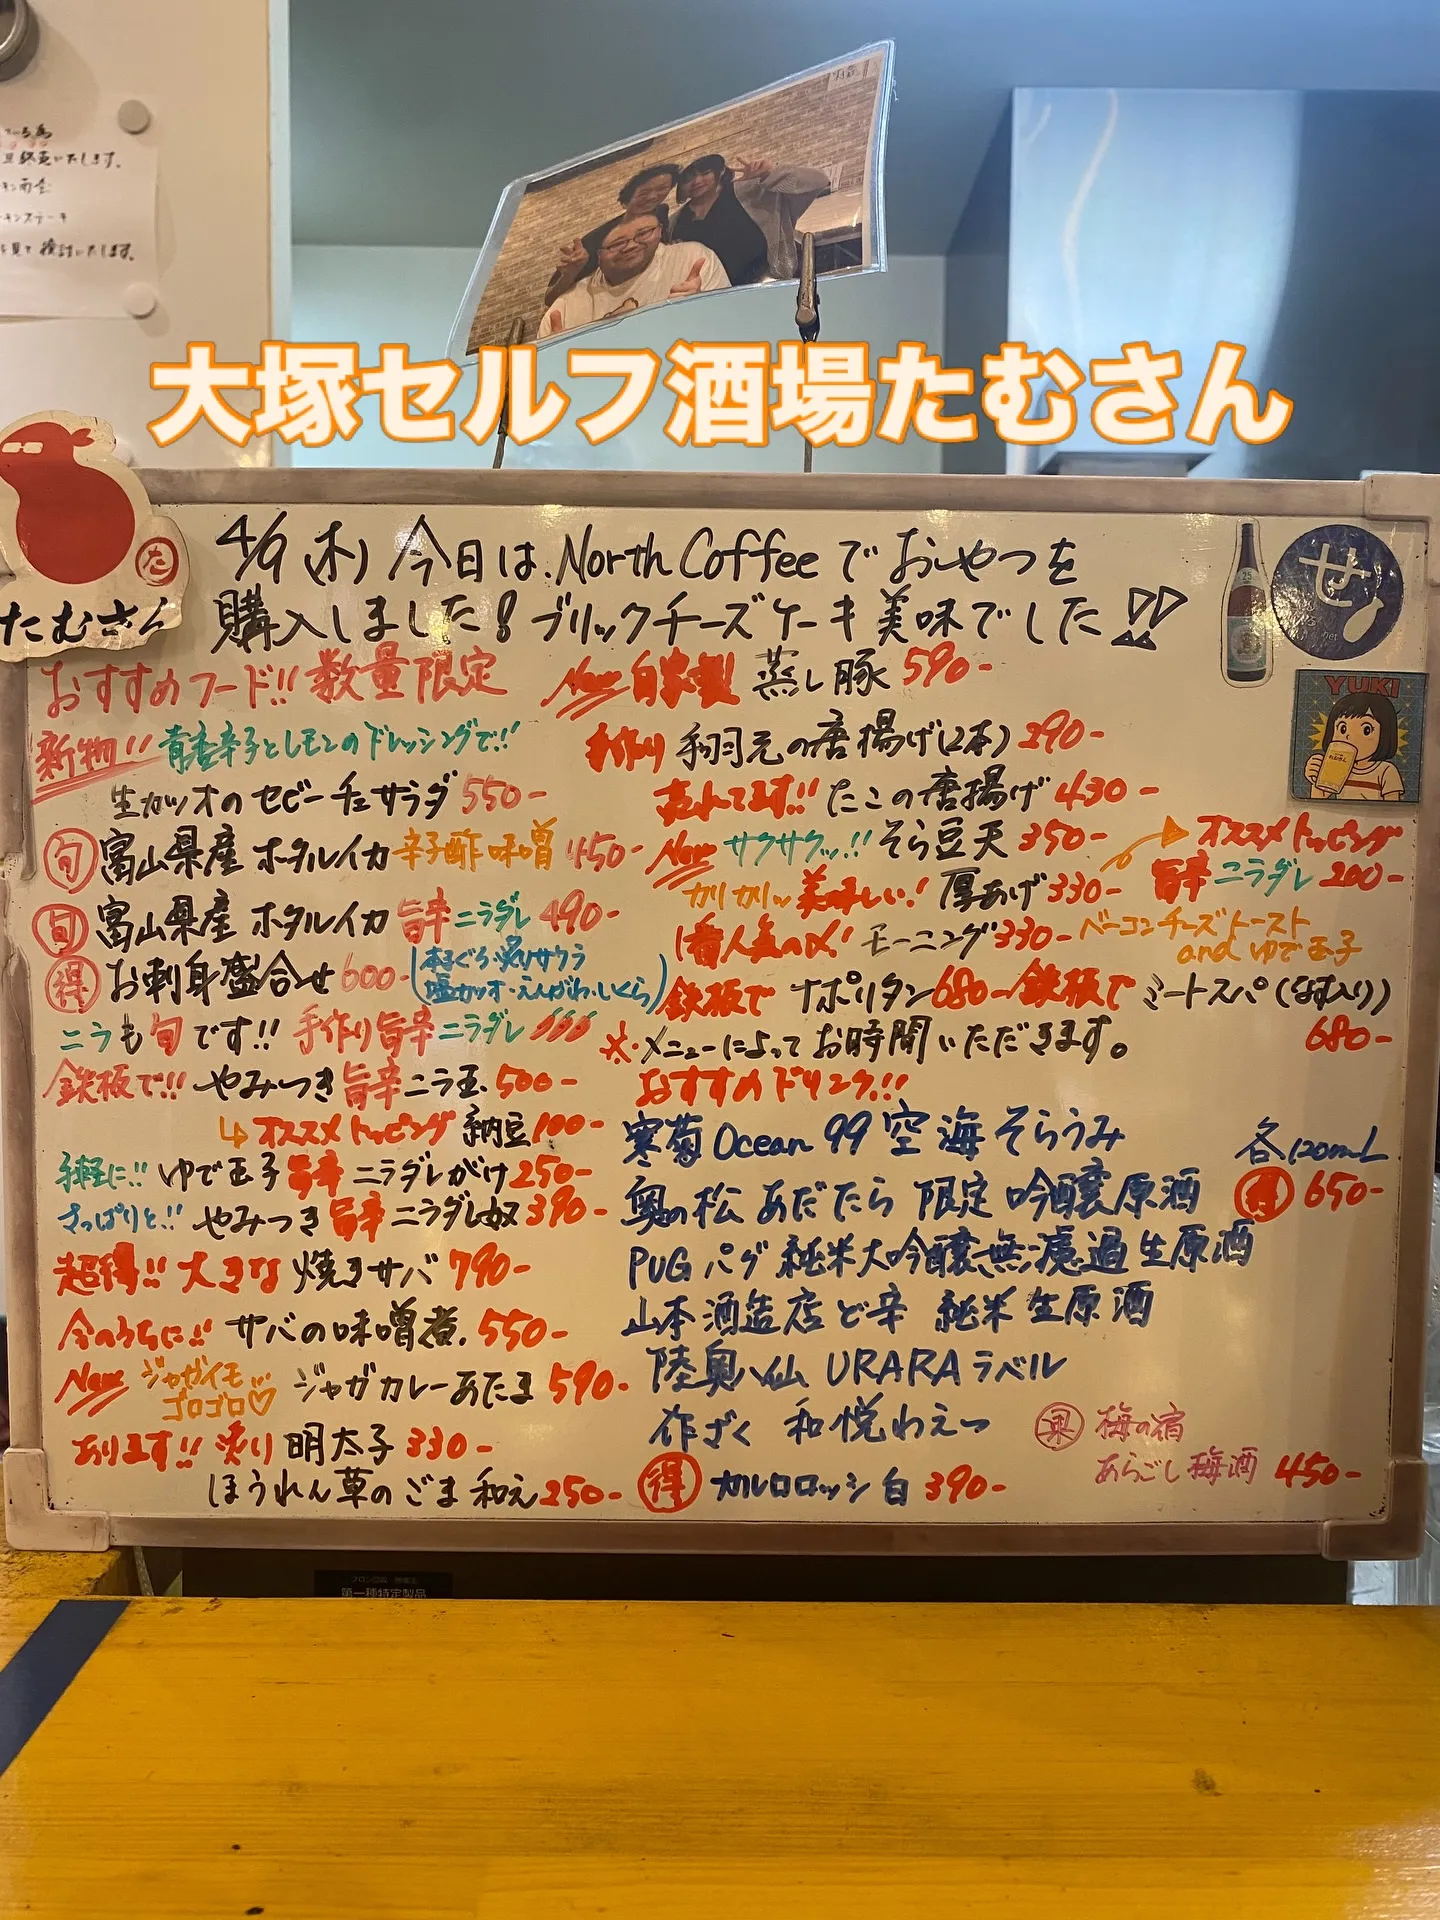 いる為
旦終売いたします。
キン南蛮
キンステーキ
を見て検討いたします。
大塚セルフ酒場たむさん
た
たむさん
せ
25
YUKI
4/9(木) 今日は、North Coffeeでおやつを
購入しました!ブリックチーズケーキ美味でした!!
おすすめフード!!数量限定
新物!! 青唐辛子とレモンのドレッシングで!!
生カツオのセビーチェサラダ 550-
旬 富山県産 ホタルイカ 辛子酢味噌 450-
旬 富山県産 ホタルイカ 旨辛ニラダレ 490-
得 お刺身盛合せ 600- (本まぐろ・炙りサワラ
塩カツオ・えんがわ・いくら)
ニラも旬です!! 手作り旨辛ニラダレ
鉄板で!! やみつき旨辛ニラ玉 500-
オススメトッピング 納豆 100-
手軽に!! ゆで玉子旨辛ニラダレがけ 250-
さっぱりと!! やみつき旨辛ニラダレ奴 390-
超得!! 大きな焼きサバ 790-
今のうちに!! サバの味噌煮 550-
New ジャガイモ…
ゴロゴロ♡ ジャガカレーあたま 590-
あります!! 炙り明太子 330-
ほうれん草のごま和え 250-
New 自家製 蒸し豚 590-
手作り 手羽元の唐揚げ(2本) 290-
売れてます!! たこの唐揚げ 430-
New サクサクッ!! そら豆天 350-
カリカリッ美味しい! 厚あげ 330-
オススメトッピング
旨辛ニラダレ 200-
1番人気の〆! モーニング 330- ベーコンチーズトースト
and ゆで玉子
鉄板で ナポリタン 680- 鉄板で ミートスパ(なす入り)
680-
※メニューによってお時間いただきます。
おすすめドリンク!!
寒菊 Ocean 99 空海 そらうみ
各120mL
奥の松 あだたら 限定 吟醸原酒 得 650-
PUG パグ 純米大吟醸無濾過生原酒
山本酒造店 ど辛 純米生原酒
陸奥八仙 URARAラベル
作ざく 和悦わえつ
果 梅の宿
あらごし梅酒 450-
得 カルロロッシ 白 390-
第一種特定製品